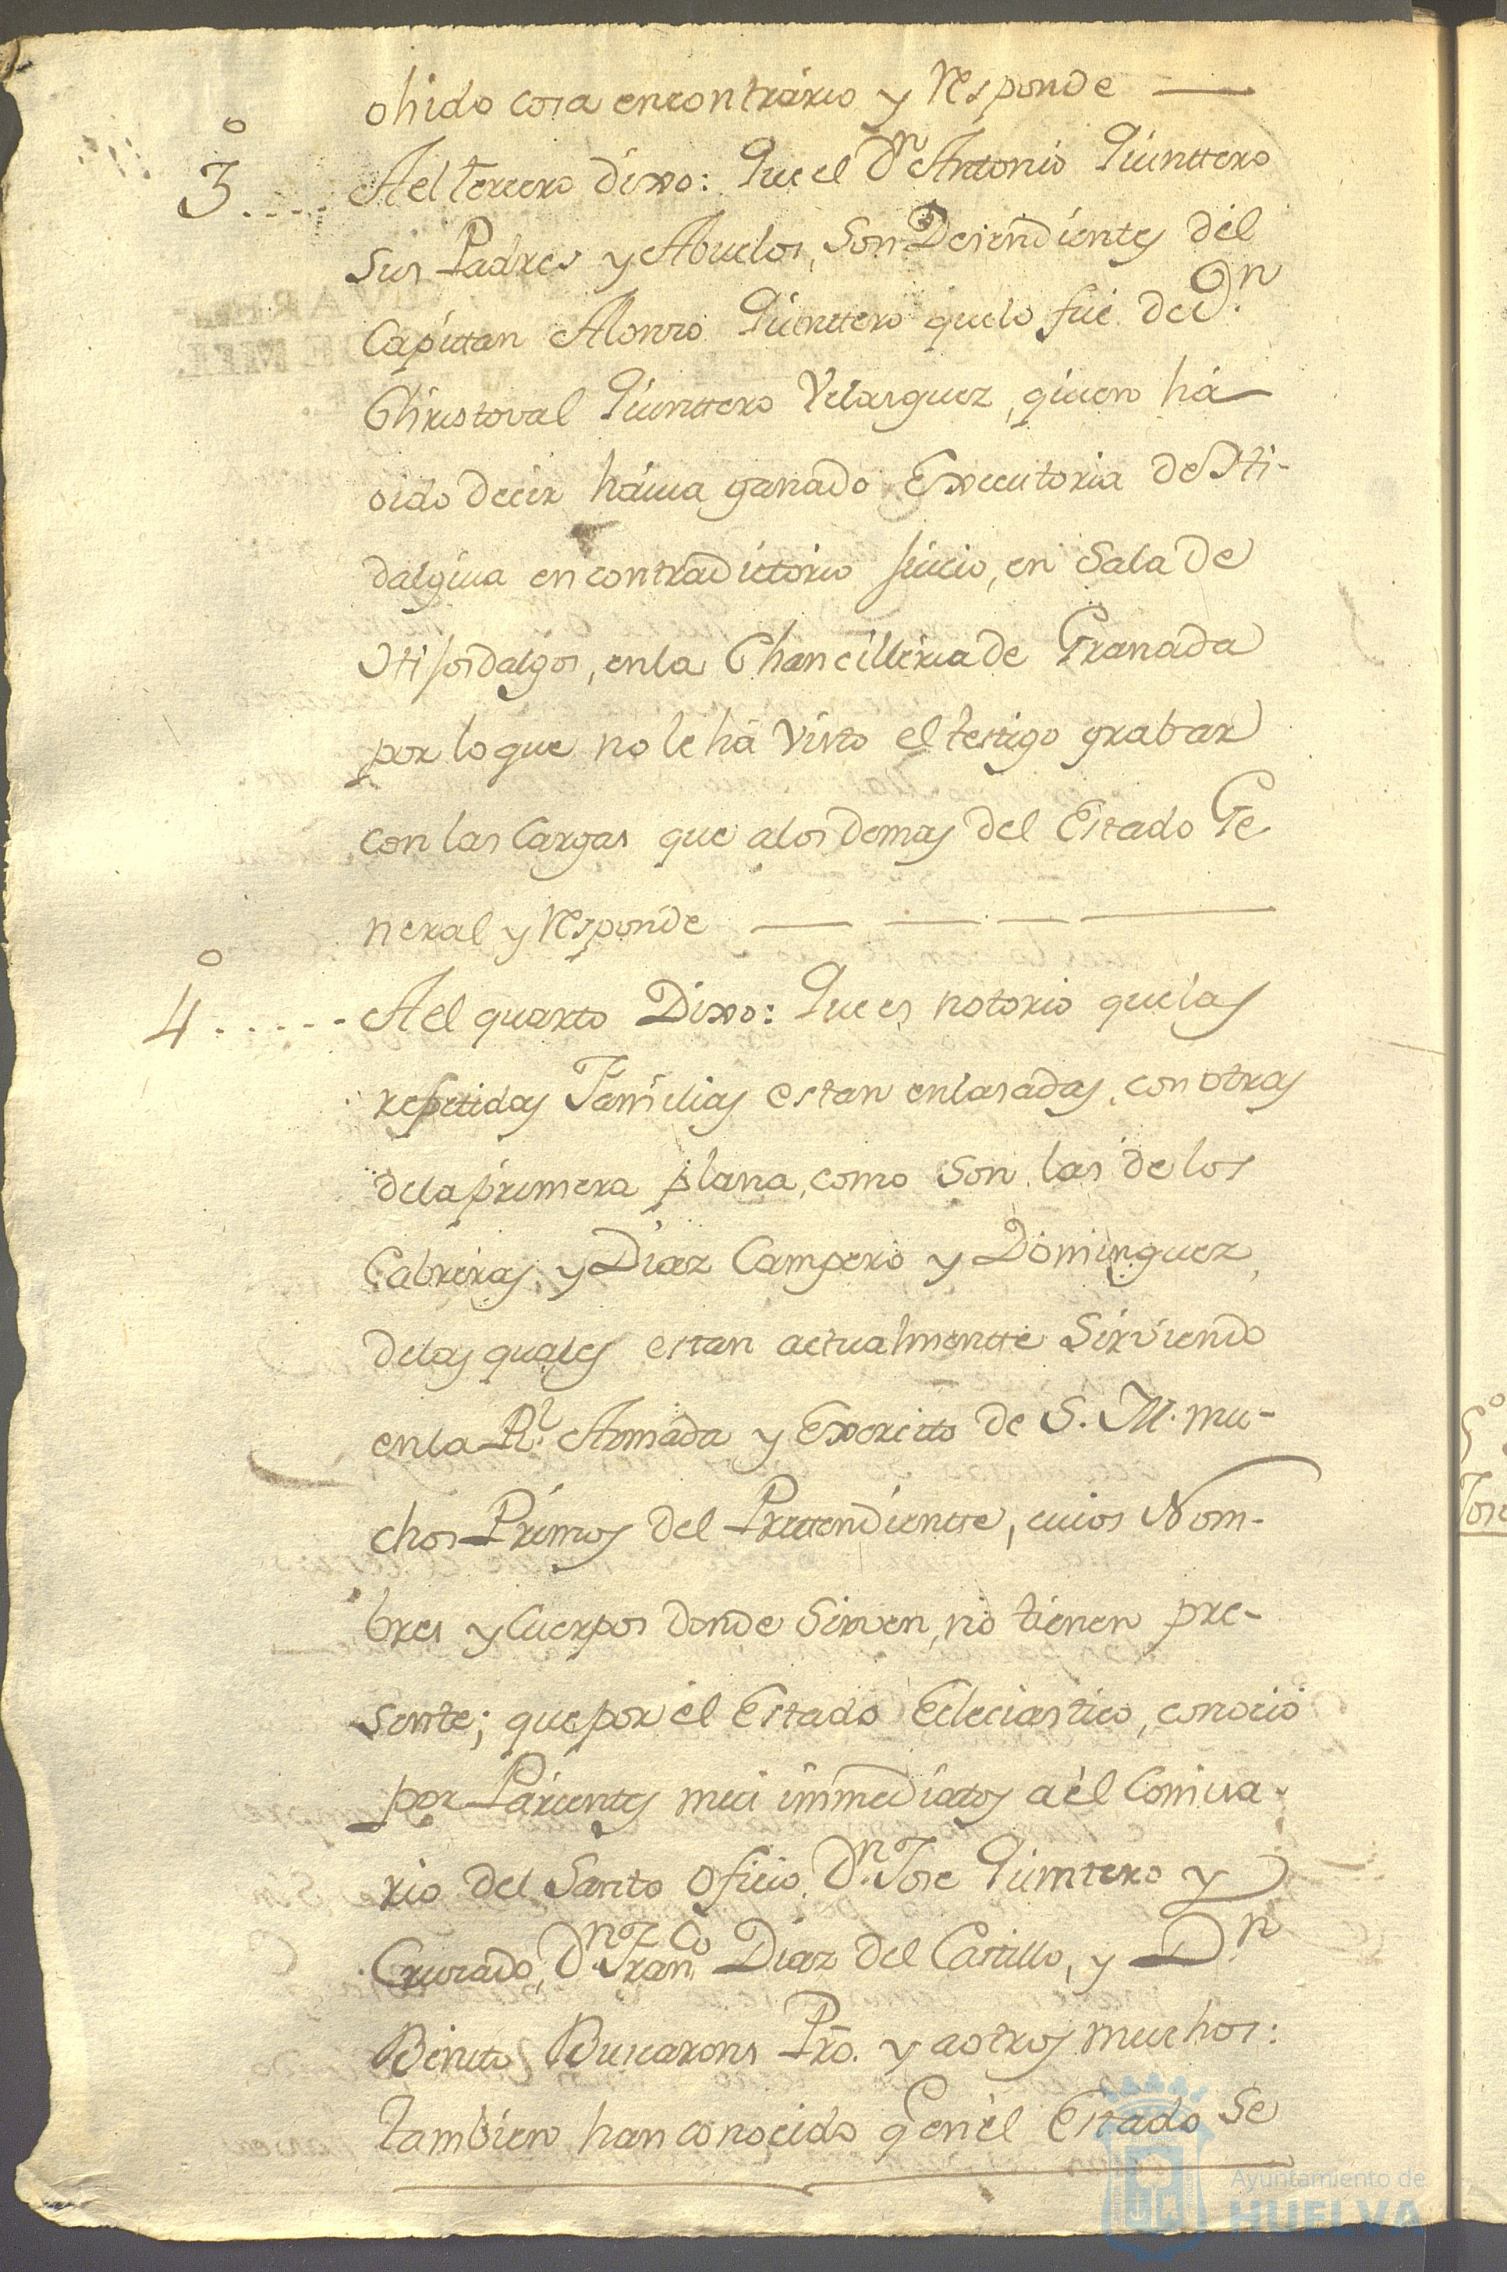 ohido cosa encontrario y responde ——
3º.... A el tercero dixo: Que el Dn Antonio Quinttero
sus Padres y Abuelos, son Desendientes del
Capittan Alonso Quinttero que lo fue de Dn.
Christoval Quinttero Velasquez, quien há
oido decir havia ganado Executoria de Hi-
dalguia en contradictorio juicio, en Sala de
Hijosdalgos, en la Chancilleria de Granada
por lo que no le há visto el testigo grabar
con las Cargas que a los demas del Estado Ge
neral y responde —— —— —— ——
4º..... A el quarto Dixo: Que es notorio que las
repetidas Familias estan enlasadas, con otras
de la primera plana, como son las de los
Cabreras, y Diaz Campero y Dominguez,
de las quales estan actualmentte sirviendo
en la Rl. Armada y Exercitto de S. M. mu-
chos Primos del Prettendientte, cuios Nom-
bres y Cuerpos donde sirven, no tienen pre-
sente; que por el Estado Eclesiastico, conocio
por Parientes mui immediatos a él Comisa-
rio del Santo Oficio, Dn. Jose Quinttero y
Cruzado, Dn. Franco Diaz del Castillo, y Dn
Benito Buscarons Pro. y a otros muchos:
tambien han conocido q en el Estado Se
Ayuntamiento de
HUELVA